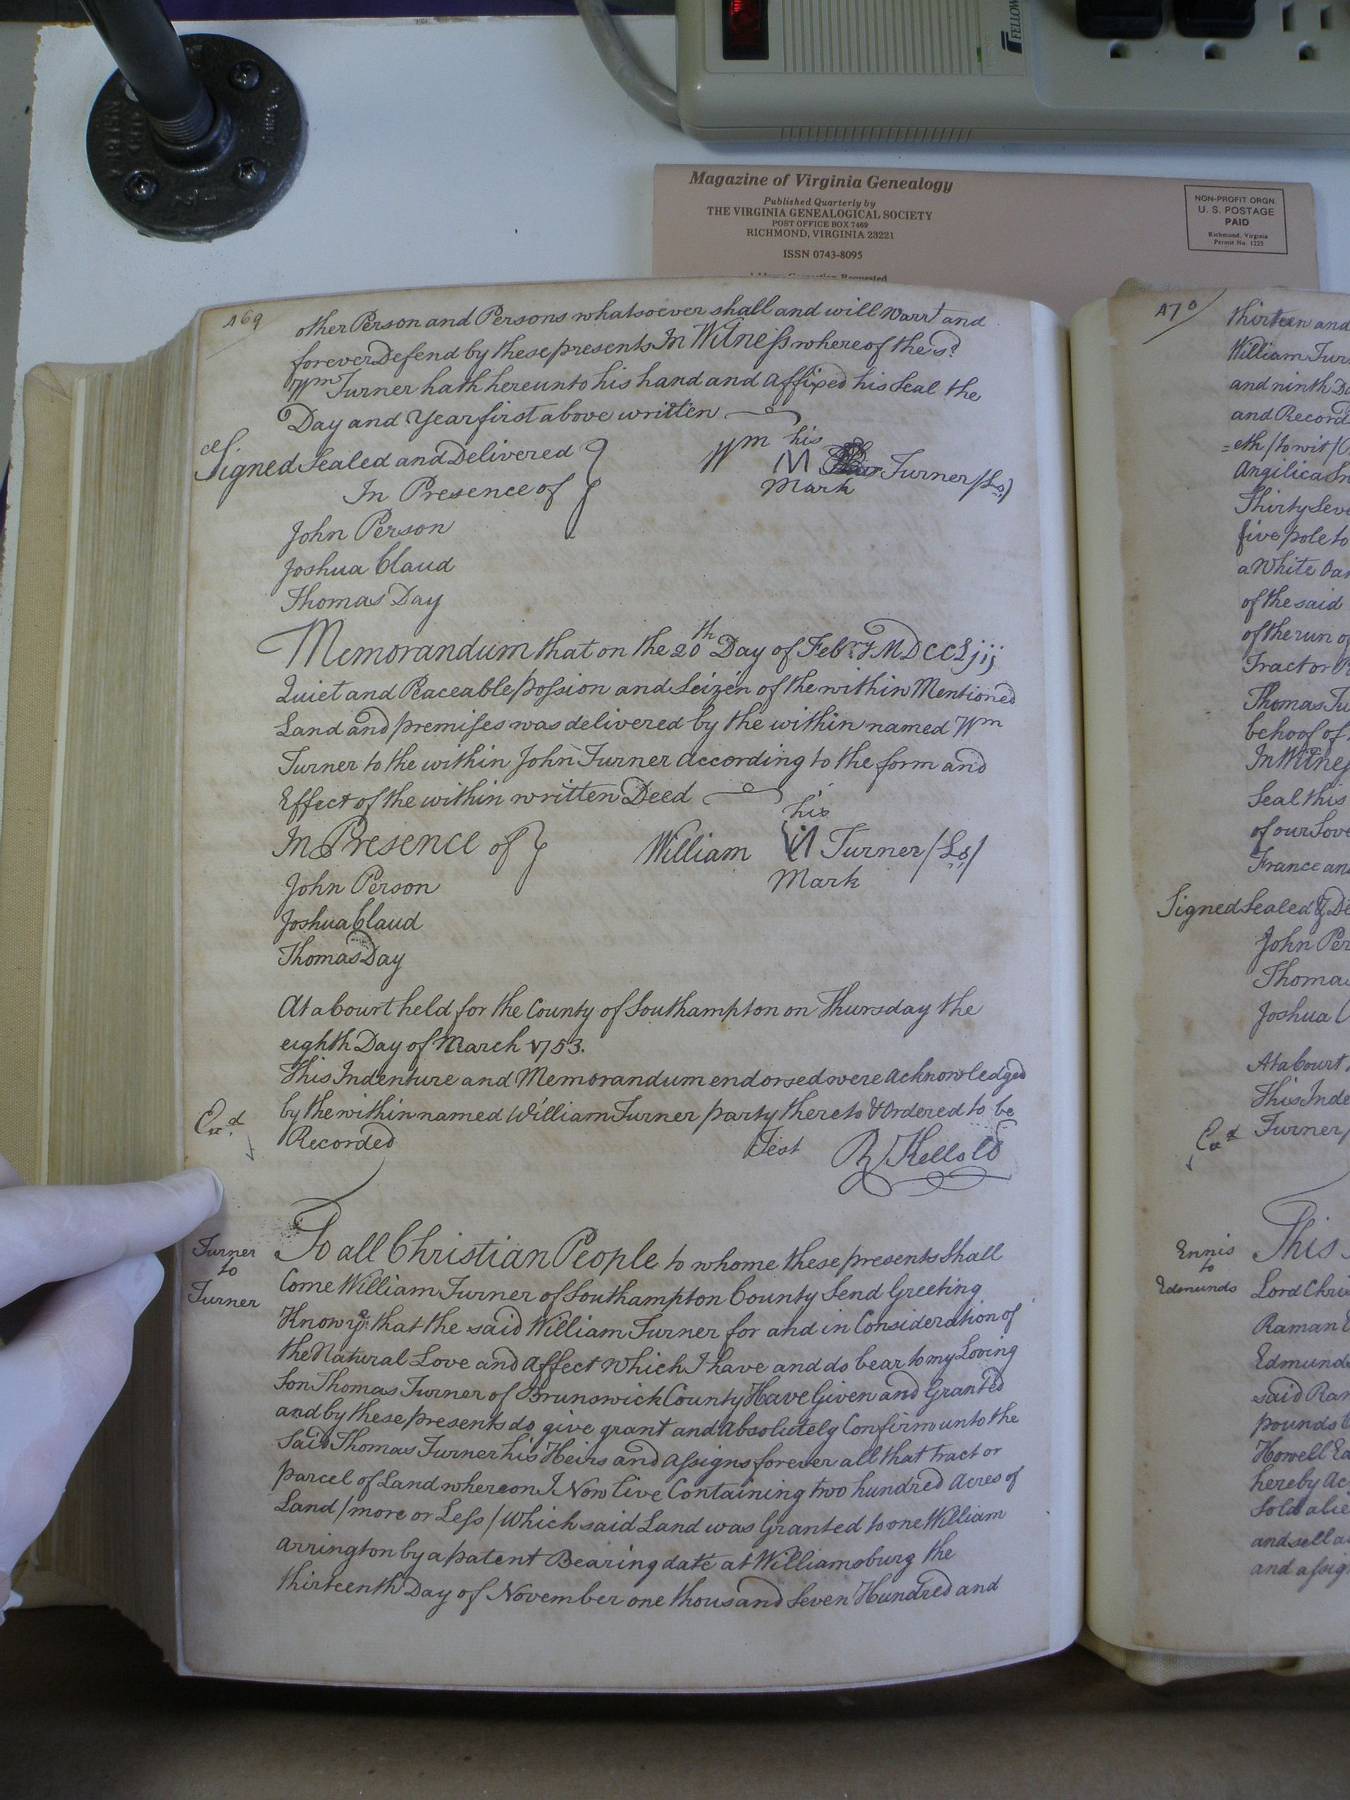 FELLOW
Magazine of Virginia Genealogy
Published Quarterly by
THE VIRGINIA GENEALOGICAL SOCIETY
POST OFFICE BOX 7469
RICHMOND, VIRGINIA 23221
ISSN 0743-8095
NON-PROFIT ORGN
U. S. POSTAGE
PAID
Richmond, Virginia
Permit No. 1225
169
other Person and Persons whatsoever shall and will Warrt and
forever Defend by these presents In Witness whereof the sd
Wm Turner hath hereunto his hand and affixed his Seal the
Day and Year first above written
Signed Sealed and Delivered
In Presence of
Wm his Turner (Ls)
Mark
John Person
Joshua Claud
Thomas Day
Memorandum that on the 20th Day of Febry MDCCLjij
Quiet and Peaceable possion and Seizen of the within Mentioned
Land and premises was delivered by the within named Wm
Turner to the within John Turner according to the form and
Effect of the within written Deed
In Presence of
William his Turner (Ls)
Mark
John Person
Joshua Claud
Thomas Day
At a Court held for the County of Southampton on Thursday the
eighth Day of March 1753.
This Indenture and Memorandum endorsed were Acknowledged
by the within named William Turner party thereto & Ordered to be
Exd
Recorded
Test
Turner
to
Turner
To all Christian People to whome these presents Shall
Come William Turner of Southampton County Send Greeting
Know ye that the said William Turner for and in Consideration of
the Natural Love and affect which I have and do bear to my Loving
Son Thomas Turner of Brunswick County Have Given and Granted
and by these presents do give grant and Absolutely Confirm unto the
Said Thomas Turner his Heirs and Assigns forever all that tract or
parcel of Land whereon I Now live Containing two hundred Acres of
Land (more or Less) Which said Land was Granted to one William
arrington by a patent Bearing date at Williamsburg the
thirteenth Day of November one thousand Seven Hundred and
170
thirteen and
William Tur
and ninth Da
and Record
=eth (to wit)
Angilica In
Thirty Seve
five pole to
a White Oa
of the said
of the run o
Tract or P
Thomas Tu
behoof of
In Witnes
Seal this
of our Love
France and
Signed Sealed & De
John Per
Thomas
Joshua C
At a Court
This Inde
Exd
Turner
Ennis
to
Edmunds
This
Lord Chri
Raman E
Edmunds
said Ran
pounds
Howell Ed
hereby Ac
Sold alie
and sell a
and assign